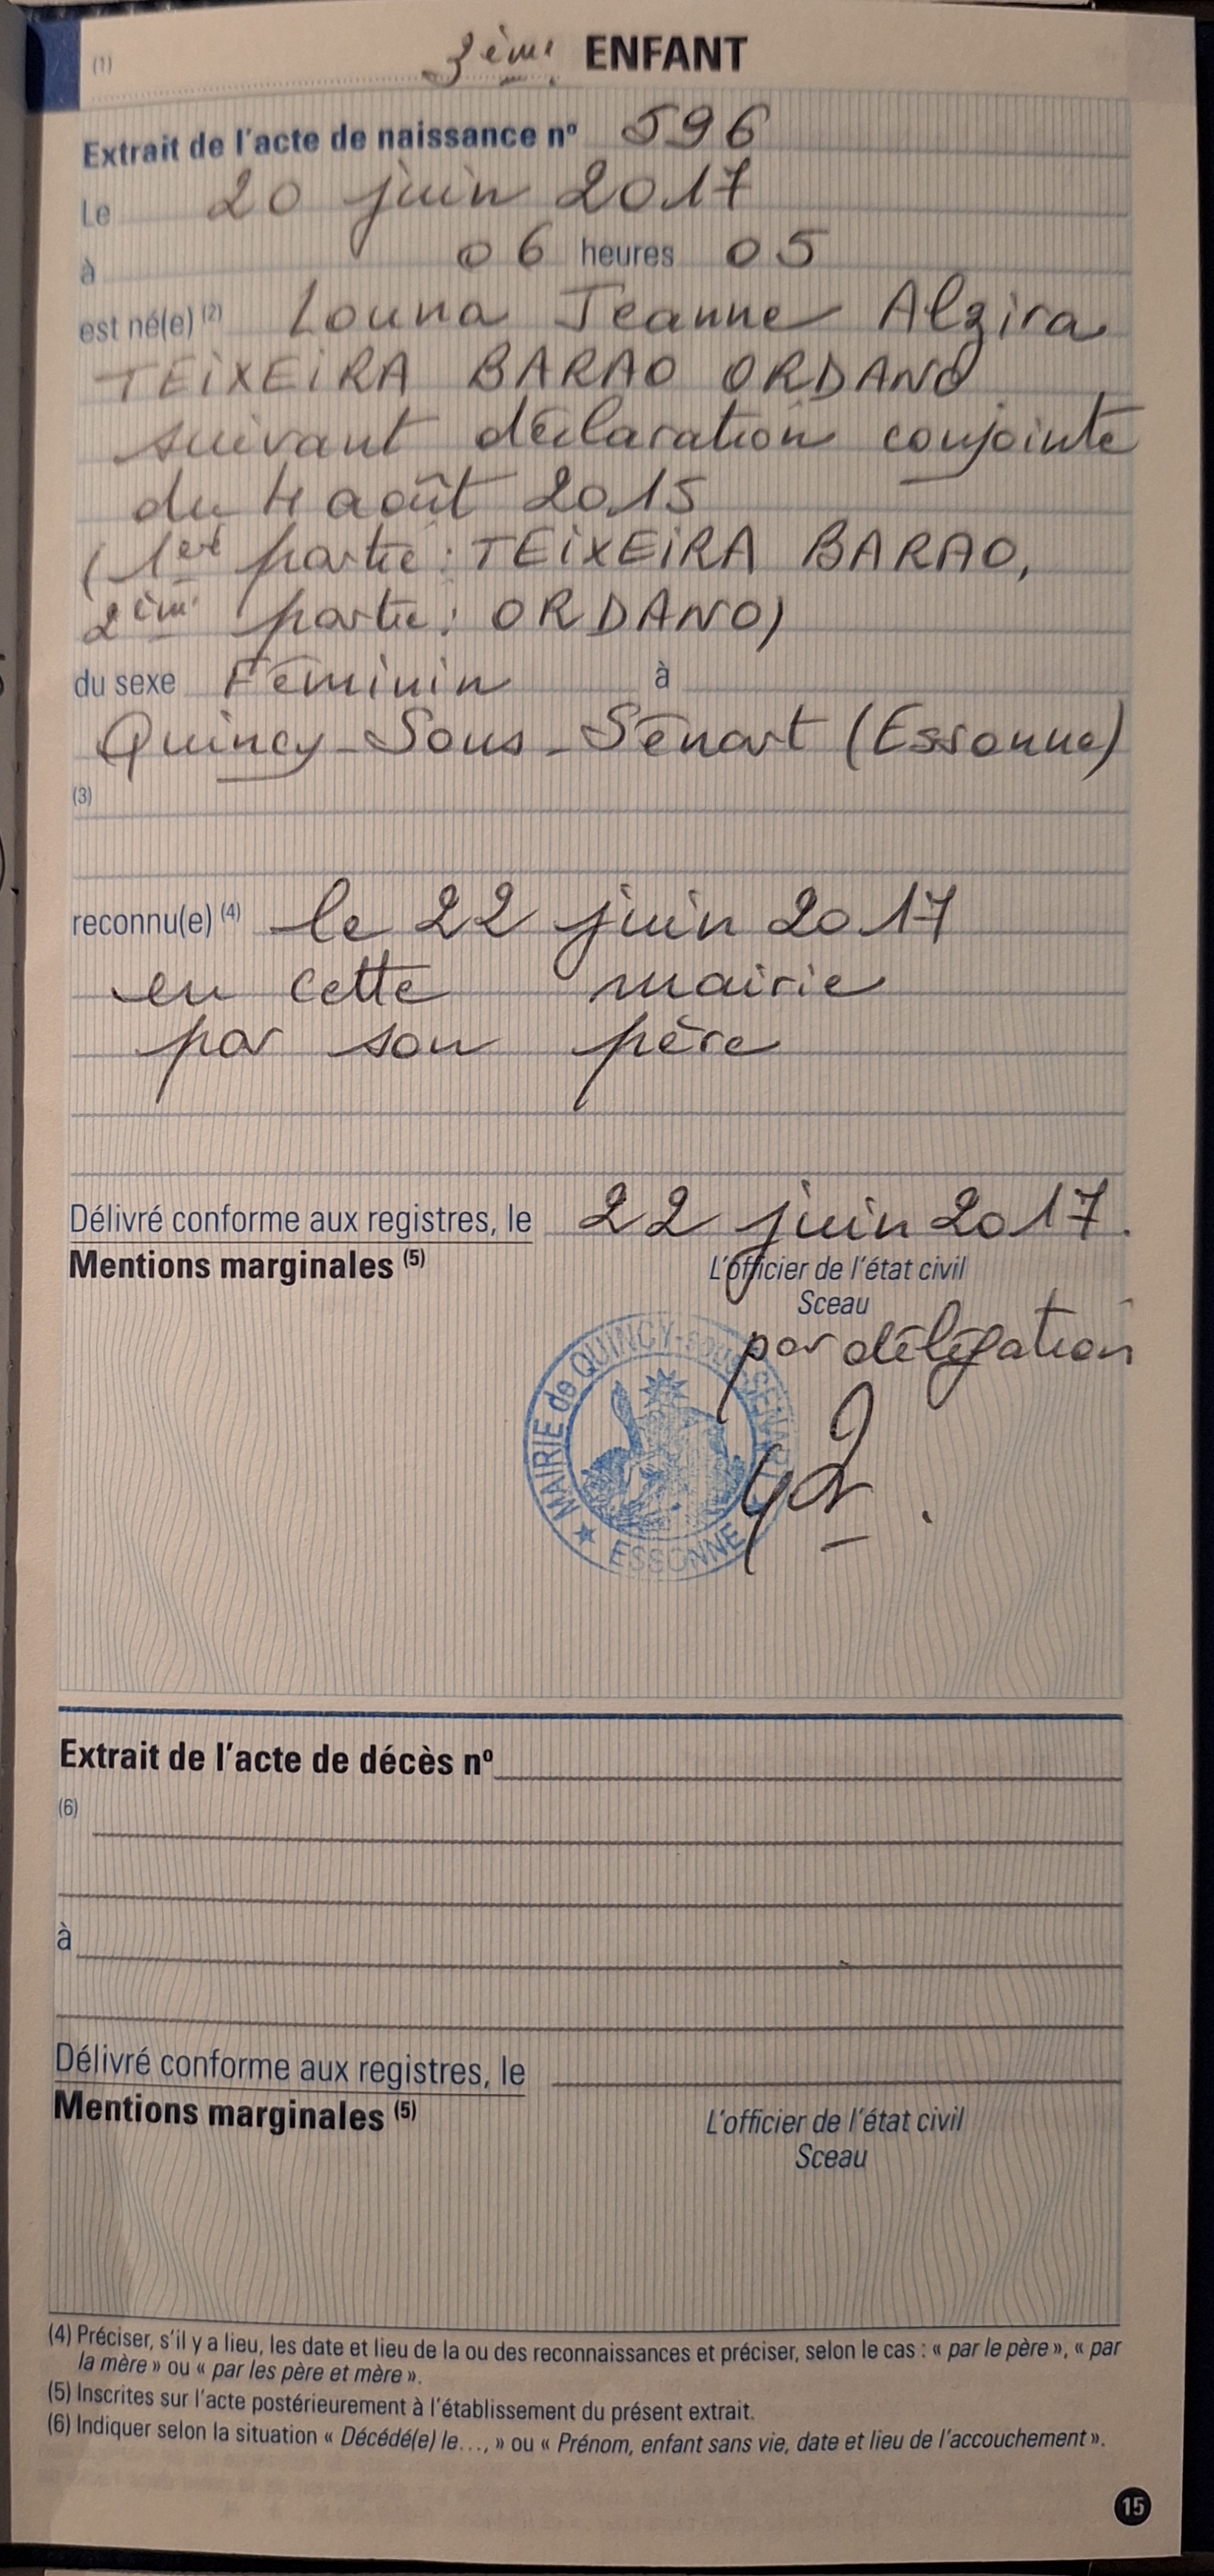 (1) 3ème ENFANT
Extrait de l'acte de naissance nº 596
Le 20 juin 2017
à 06 heures 05
est né(e) (2) Louna Jeanne Alzira
TEIXEIRA BARAO ORDANO
suivant déclaration conjointe
du 4 août 2015
(1ere partie : TEIXEIRA BARAO,
2ème partie : ORDANO)
du sexe Féminin à
Quincy-Sous-Sénart (Essonne)
(3)
reconnu(e) (4) le 22 juin 2017
en cette mairie
par son père
Délivré conforme aux registres, le 22 juin 2017.
Mentions marginales (5) L'officier de l'état civil
Sceau
par délégation
MAIRIE de QUINCY-SOUS-SENART
★ ESSONNE ★
Extrait de l'acte de décès nº
(6)
à
Délivré conforme aux registres, le
Mentions marginales (5) L'officier de l'état civil
Sceau
(4) Préciser, s'il y a lieu, les date et lieu de la ou des reconnaissances et préciser, selon le cas : « par le père », « par
la mère » ou « par les père et mère ».
(5) Inscrites sur l'acte postérieurement à l'établissement du présent extrait.
(6) Indiquer selon la situation « Décédé(e) le..., » ou « Prénom, enfant sans vie, date et lieu de l'accouchement ».
15